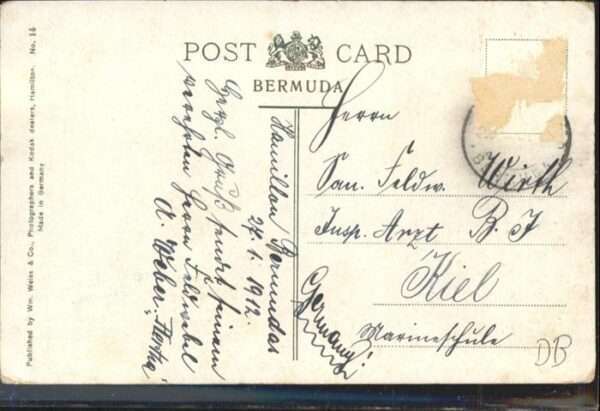 POST CARD
BERMUDA
Published by Wm. Weiss & Co., Photographers and Kodak dealers, Hamilton. No. 14
Made in Germany
Hamilton Bermudas
27.1.1912.
Herzl. Gruß sendet seinem
verehrten Herrn Feldwebel
A. Weber
Herrn
San. Feldw. Wirth
Insp. Arzt B. I
Kiel
Marineschule
Germany!
DB